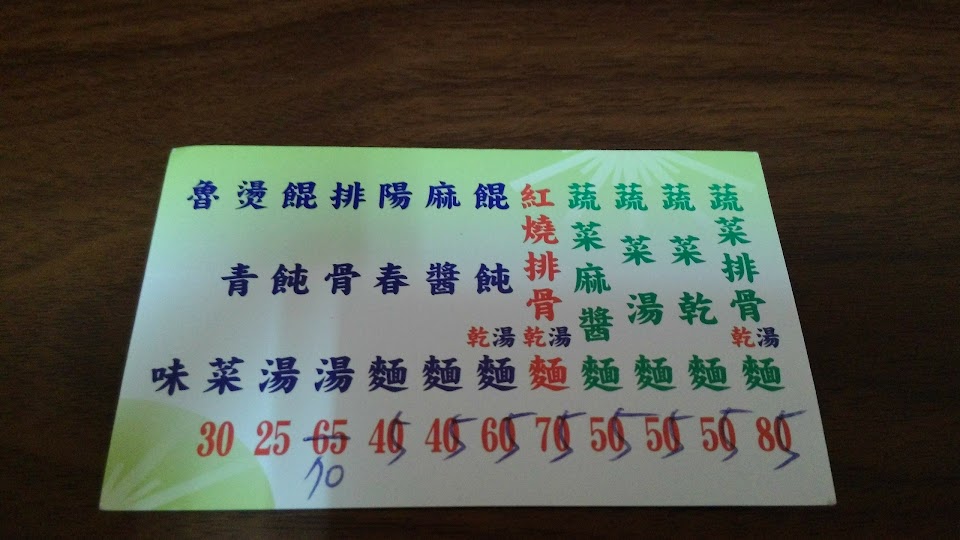 蔬菜排骨乾湯麵 85
蔬菜乾麵 55
蔬菜湯麵 55
蔬菜麻醬麵 55
紅燒排骨乾湯麵 75
餛飩乾湯麵 65
麻醬麵 45
陽春麵 45
排骨湯 65 70
餛飩湯 25
燙青菜 30
魯味